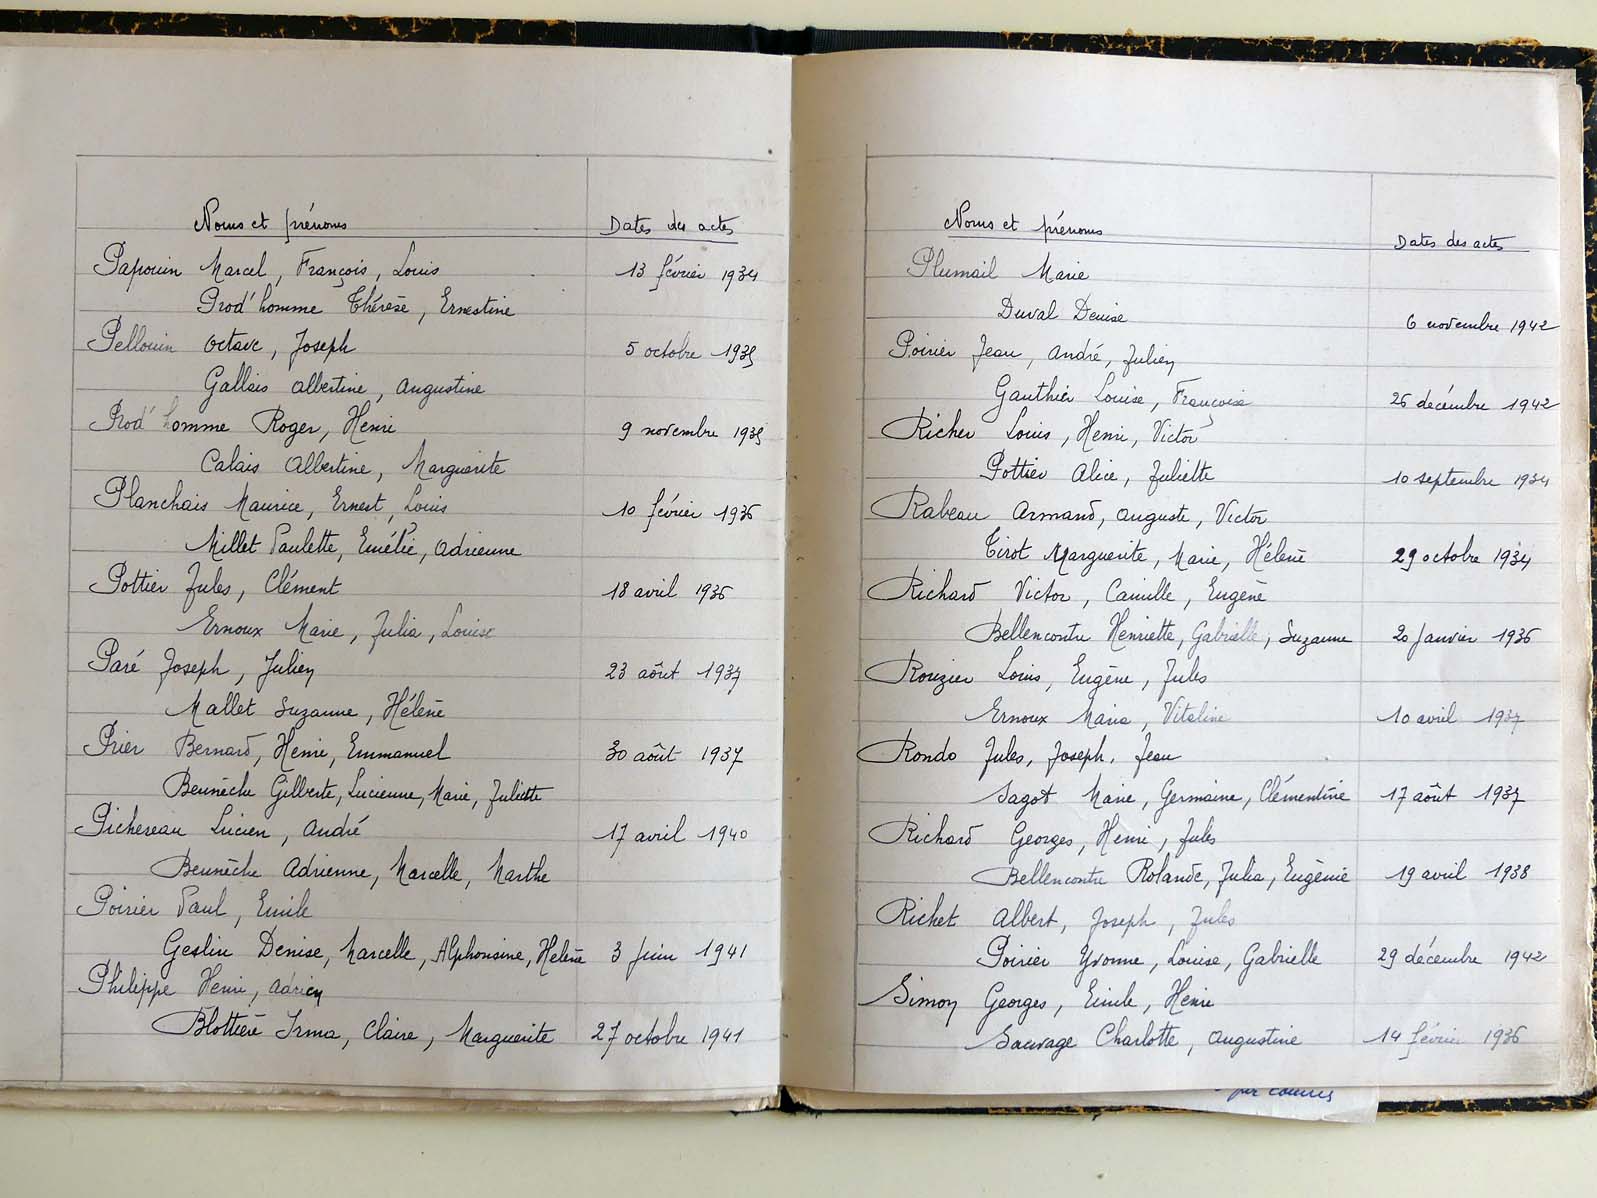 Noms et prénoms Dates des actes
Papouin Marcel, François, Louis 13 février 1934
Prod'homme Thérèse, Ernestine
Pellouin Octave, Joseph 5 octobre 1935
Gallais Albertine, Augustine
Prod'homme Roger, Henri 9 novembre 1935
Calais Albertine, Marguerite
Planchais Maurice, Ernest, Louis 10 février 1936
Millet Paulette, Emélie, Adrienne
Pottier Jules, Clément 18 avril 1936
Ernoux Marie, Julia, Louise
Paré Joseph, Julien 23 aôut 1937
Mallet Suzanne, Hélène
Prier Bernard, Henri, Emmanuel 30 aôut 1937
Beunèche Gilberte, Lucienne, Marie, Juliette
Pichereau Lucien, André 17 avril 1940
Beunèche Adrienne, Marcelle, Marthe
Poirier Paul, Emile
Geslin Denise, Marcelle, Alphonsine, Helène 3 Juin 1941
Philippe Henri, Adrien
Blottière Irma, Claire, Marguerite 27 octobre 1941
Noms et prénoms Dates des actes
Plumail Marie
Duval Denise 6 novembre 1942
Poirier Jean, André, Julien
Gauthier Louise, Françoise 26 décembre 1942
Richer Louis, Henri, Victor
Pottier Alice, Juliette 10 septembre 1934
Rabeau Armand, Auguste, Victor
Tirot Marguerite, Marie, Hélène 29 octobre 1934
Richard Victor, Camille, Eugène
Bellencontre Henriette, Gabrielle, Suzanne 20 Janvier 1936
Rouzier Louis, Eugène, Jules
Ernoux Maria, Vitaline 10 avril 1937
Rondo Jules, Joseph, Jean
Sagot Marie, Germaine, Clémentine 17 aôut 1937
Richard Georges, Henri, Jules
Bellencontre Rolande, Julia, Eugénie 19 avril 1938
Richet Albert, Joseph, Jules
Poirier Yvonne, Louise, Gabrielle 29 décembre 1942
Simon Georges, Emile, Henri
Sauvage Charlotte, Augustine 14 février 1936